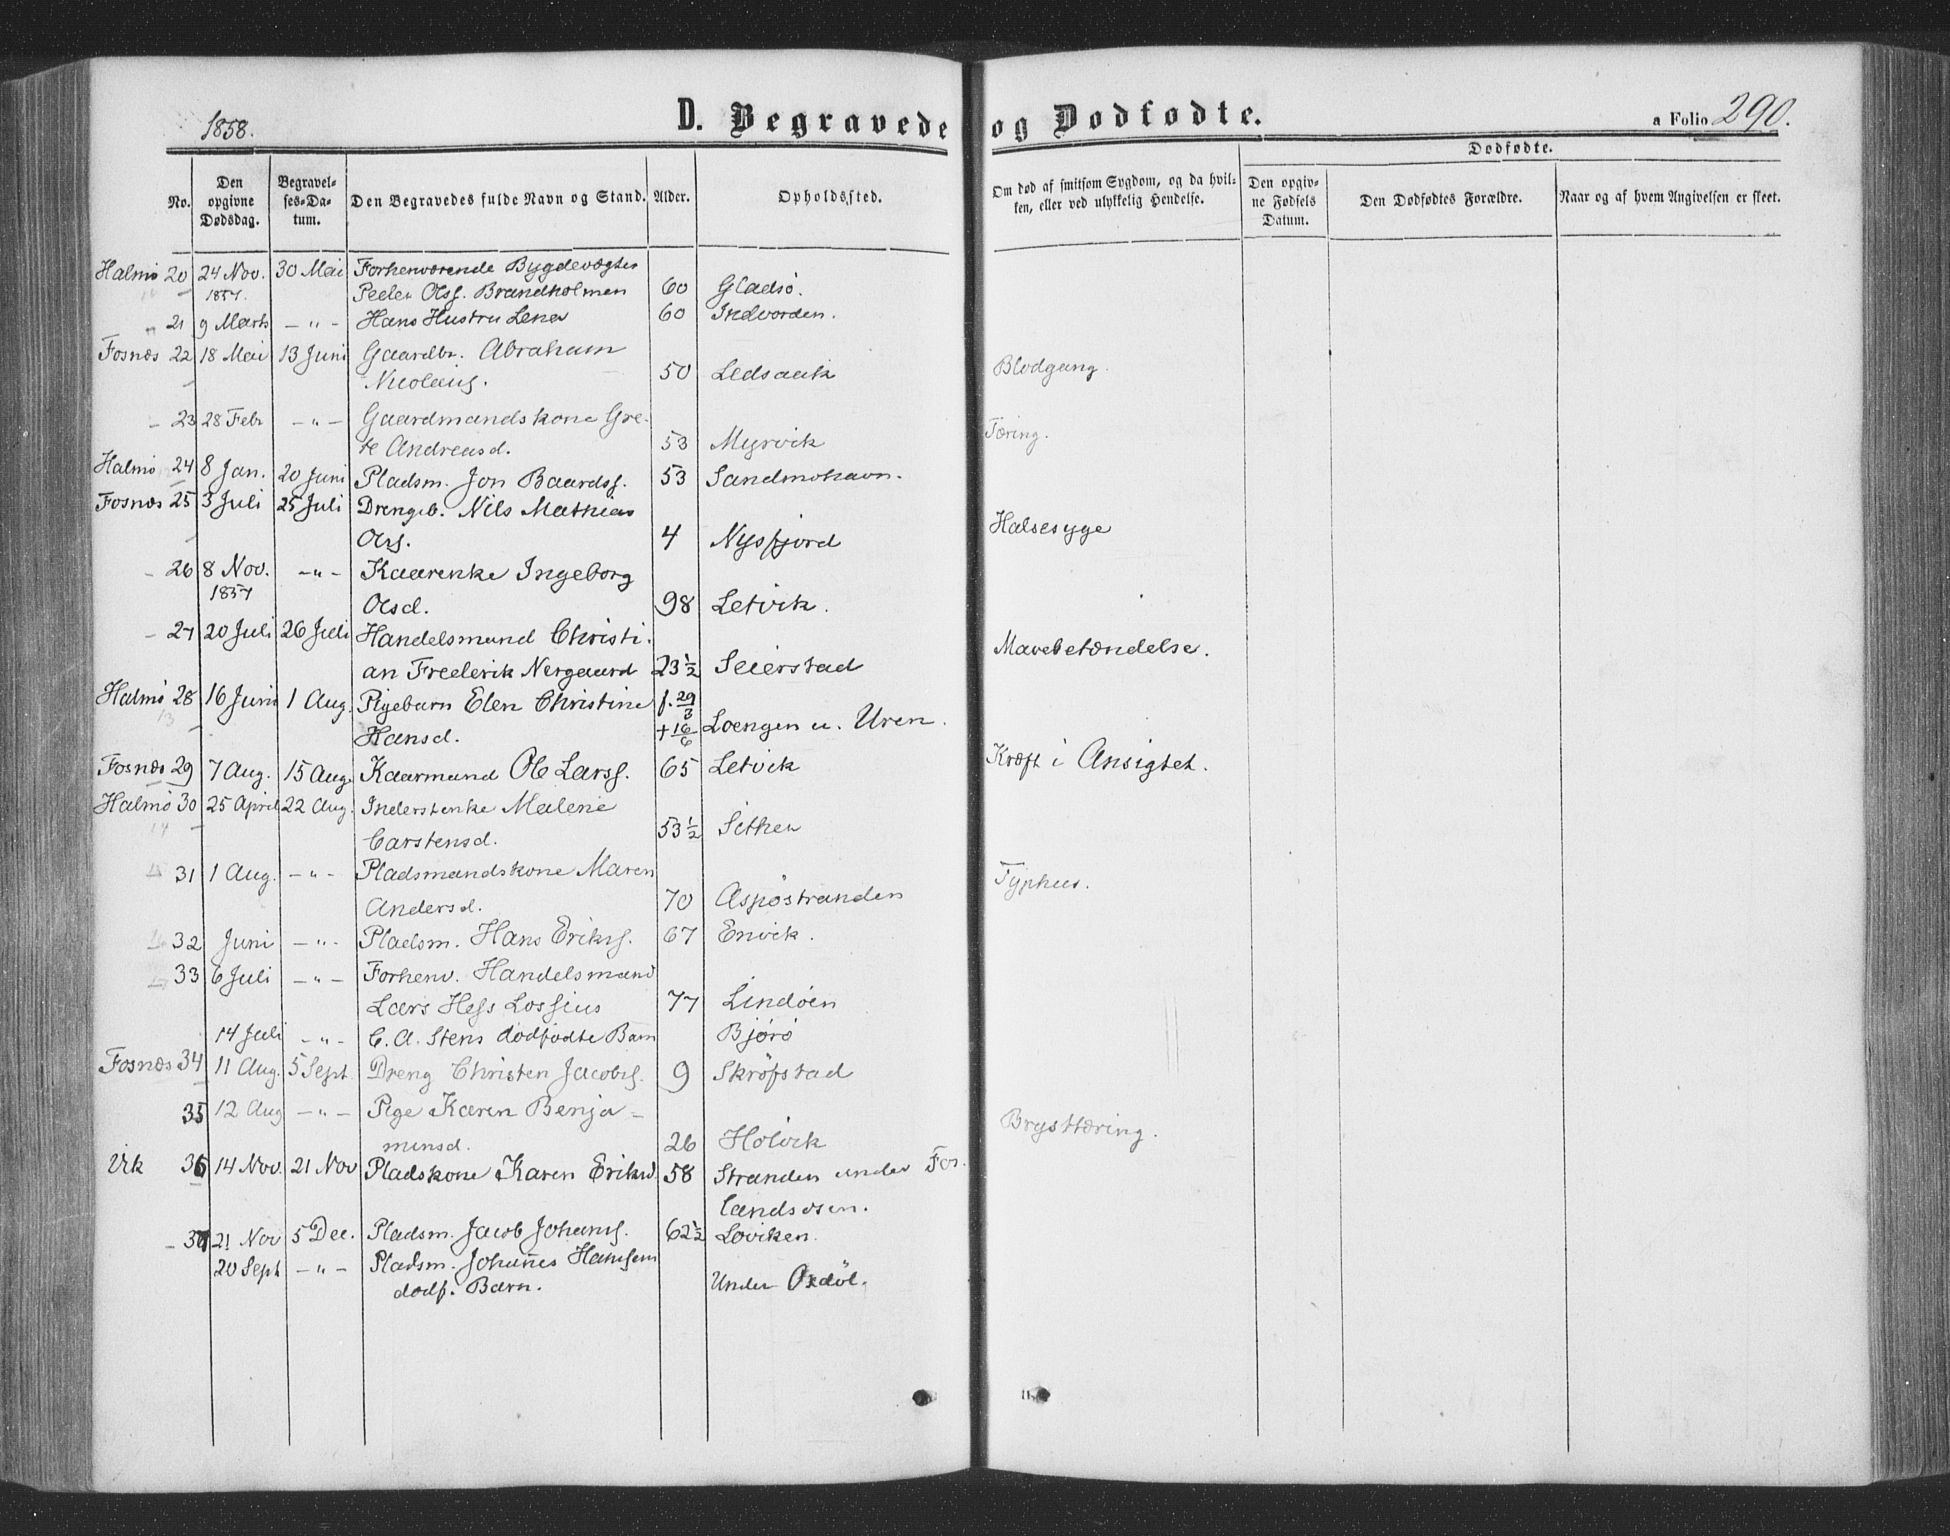 1858.
D. Begravede og Dødfødte.
a Folio 290.
No. Den opgivne Dødsdag. Begravelses-Datum. Den Begravedes fulde Navn og Stand. Alder. Opholdssted. Om død af smitsom Sygdom, og da hvilken, eller ved ulykkelig Hendelse. Dødfødte. Den opgivne Fødsels Datum. Den Dødfødtes Forældre. Naar og af hvem Angivelsen er skeet.
Halmö 20 24 Nov. 30 Mai Forhenværende Bygdevægter
1857. Peder Olss. Brandholmen 60 Gladsö.
" 21 9 Marts - " - Hans Hustru Lena 60 Indvorden.
Fosnæs 22 18 Mai 13 Juni Gaardbr. Abraham
Nicolaiss. 50 Ledsaak Blodgang.
- 23 28 Febr - " - Gaardmandskone Gre-
te Andreasd. 53 Myrvik Tæring.
Halmö 24 8 Jan. 20 Juni Pladsm. Jon Baardss. 53 Sandmohavn.
Fosnæs 25 3 Juli 25 Juli Drengeb. Nils Mathias
Olss. 4 Nysfjord Halsesyge
- 26 8 Nov. - " - Kaarenke Ingeborg
1857 Olsd. 98 Letvik.
- 27 20 Juli 26 Juli Handelsmand Christi-
an Frederik Nergaard 23½ Seierstad Mavebetændelse.
Halmö 28 16 Juni 1 Aug. Pigebarn Elen Christine f. 29/3
Hansd. + 16/6 Loengen u. Uren.
Fosnæs 29 7 Aug. 15 Aug. Kaarmand Ole Larss. 65 Letvik Kræft i Ansigtet.
Halmö 30 25 April 22 Aug. Inderstenke Malene
14 Carstensd. 53½ Sethen
31 1 Aug. - " - Pladsmandskone Maren
Andersd. 70 Aspöstranden Typhus.
32 Juni - " - Pladsm. Hans Eriks. 67 Envik.
33 6 Juli - " - Forhenv. Handelsmand
Lars Hess Lossius 77 Lindöen
14 Juli - " - C. A. Stens dödfödte Barn Björö
Fosnæs 34 11 Aug. 5 Sept Dreng Christen Jacobs. 9 Skröfstad
35 12 Aug - " - Pige Karen Benja-
minsd. 26 Holvik Brysttæring.
Vik 36 14 Nov. 21 Nov Pladskone Karen Eriksd 58 Stranden under For-
landsosen.
- 37 21 Nov 5 Dec. Pladsm. Jacob Johanss. 62½ Loviken.
20 Sept - " - Pladsm. Johannes Hanssens
dödf. Barn. Under Oxdöl.